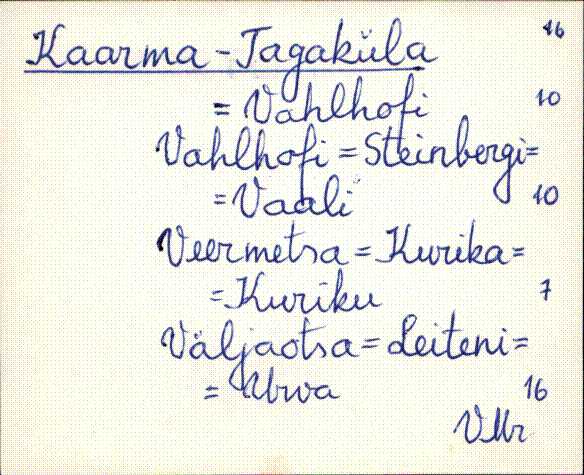 16
Kaarma-Tagaküla
= Vahlhofi 10
Vahlhofi = Steinbergi =
= Vaali 10
Veermetsa = Kurika =
= Kuriku 7
Väljaotsa = Leiteni =
= Urva 16
VMr